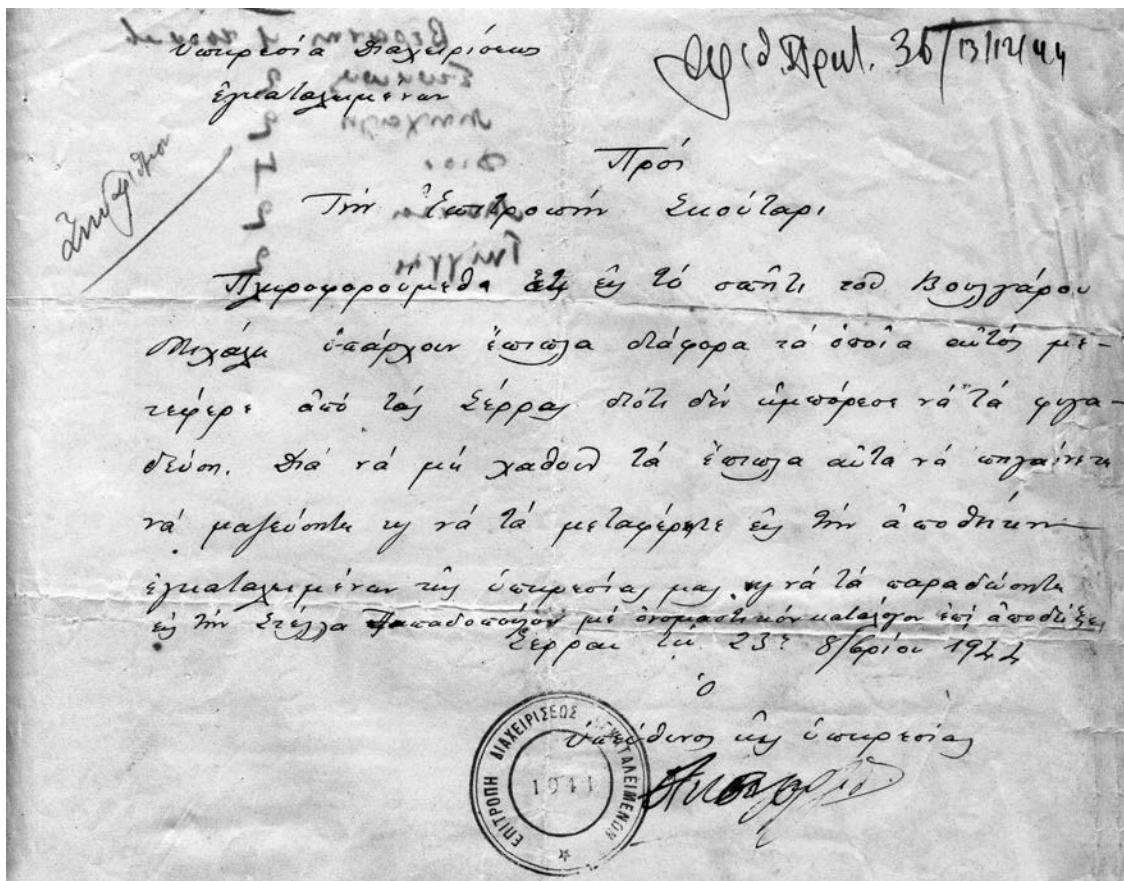 Ὑπηρεσία Διαχειρίσεως
ἐγκαταλειμένων
Ἀριθ. Πρωτ. 36/13/12/44
Πρός
Τήν Ἐπιτροπήν Σκούταρι
Πληροφορούμεθα ὅτι εἰς τό σπῆτι τοῦ Βουλγάρου
Μιχάλη ὑπάρχουν ἔπιπλα διάφορα τά ὁποῖα αὐτός με-
τεφερε ἀπό τάς Σέρρας διότι δέν ἠμπόρεσε νά τά φυγα-
δεύση. Διά νά μή χαθοῦν τά ἔπιπλα αὐτα νά πηγαίνετε
νά μαζεύσητε κ νά τά μεταφέρετε εἰς τήν ἀποθήκην
ἐγκαταλειμένων τῆς ὑπηρεσίας μας κ νά τά παραδώσητε
εἰς τήν Στέλλα Παπαδοπούλου μέ ὀνομαστικόν κατάλογον ἐπί ἀποδείξει
Σέρραι τῇ 23ῃ 8/βρίου 1944
Ὁ
ὑπεύθυνος τῆς ὑπηρεσίας
ΕΠΙΤΡΟΠΗ ΔΙΑΧΕΙΡΙΣΕΩΣ ΕΓΚΑΤΑΛΕΙΜΕΝΩΝ
1944